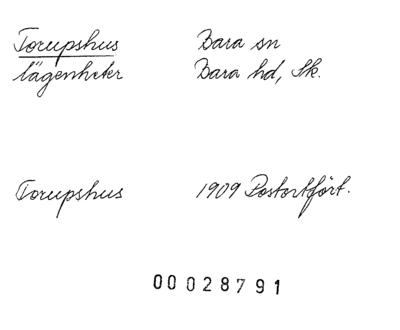 Torupshus Bara sn
lägenheter Bara hd, Sk.
Torupshus 1909 Postortfört.
00028791